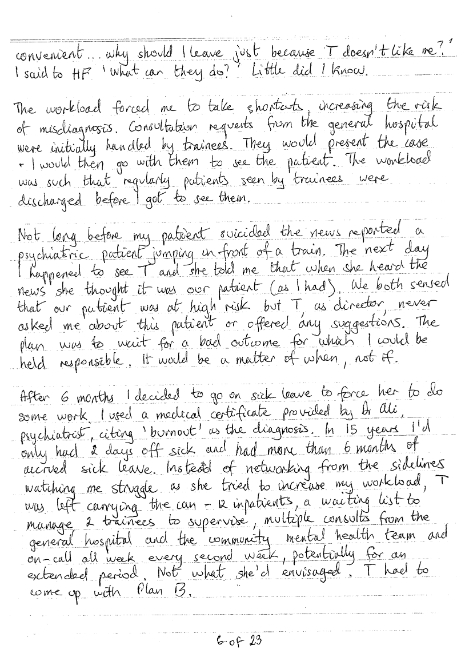 convenient... why should I leave just because T doesn't like me?'
I said to HF 'What can they do?' Little did I know.
The workload forced me to take shortcuts, increasing the risk
of misdiagnosis. Consultation requests from the general hospital
were initially handled by trainees. They would present the case
+ I would then go with them to see the patient. The workload
was such that regularly patients seen by trainees were
discharged before I got to see them.
Not long before my patient suicided the news reported a
psychiatric patient jumping in front of a train. The next day
I happened to see T and she told me that when she heard the
news she thought it was our patient (as I had). We both sensed
that our patient was at high risk but T, as director, never
asked me about this patient or offered any suggestions. The
plan was to wait for a bad outcome for which I could be
held responsible. It would be a matter of when, not if.
After 6 months I decided to go on sick leave to force her to do
some work. I used a medical certificate provided by Dr Ali,
psychiatrist, citing 'burnout' as the diagnosis. In 15 years I'd
only had 2 days off sick and had more than 6 months of
accrued sick leave. Instead of networking from the sidelines
watching me struggle as she tried to increase my workload, T
was left carrying the can - 12 inpatients, a waiting list to
manage, 2 trainees to supervise, multiple consults from the
general hospital and the community mental health team and
on-call all week every second week, potentially for an
extended period. Not what she'd envisaged. T had to
come up with Plan B.
6 of 23